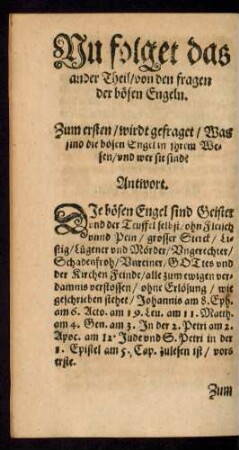 Nu folget das
ander Theil/von den fragen
der bösen Engeln.
Zum ersten/wirdt gefraget/Was
sind die bösen Engel in jhrem We-
sen/vnd wer sie sind?
Antwort.
DIe bösen Engel sind Geister
vnd der Teuffel selbst/ohn Fleisch
vnnd Pein/grosser Sterck/Li-
stig/Lügener vnd Mörder/Vngerechter/
Schadenfroh/Vnreiner, GOttes vnd
der Kirchen Feinde/alle zum ewigen ver-
damnis verstossen/ohne Erlösung/wie
geschrieben stehet/Johannis am 8. Eph.
am 6. Acto. am 19. Luc. am 11. Matth.
am 4. Gen. am 3. In der 2. Petri am 2.
Apoc. am 12. Jude vnd S. Petri in der
1. Epistel am 5. Cap. zulesen ist/vors
erste.
Zum